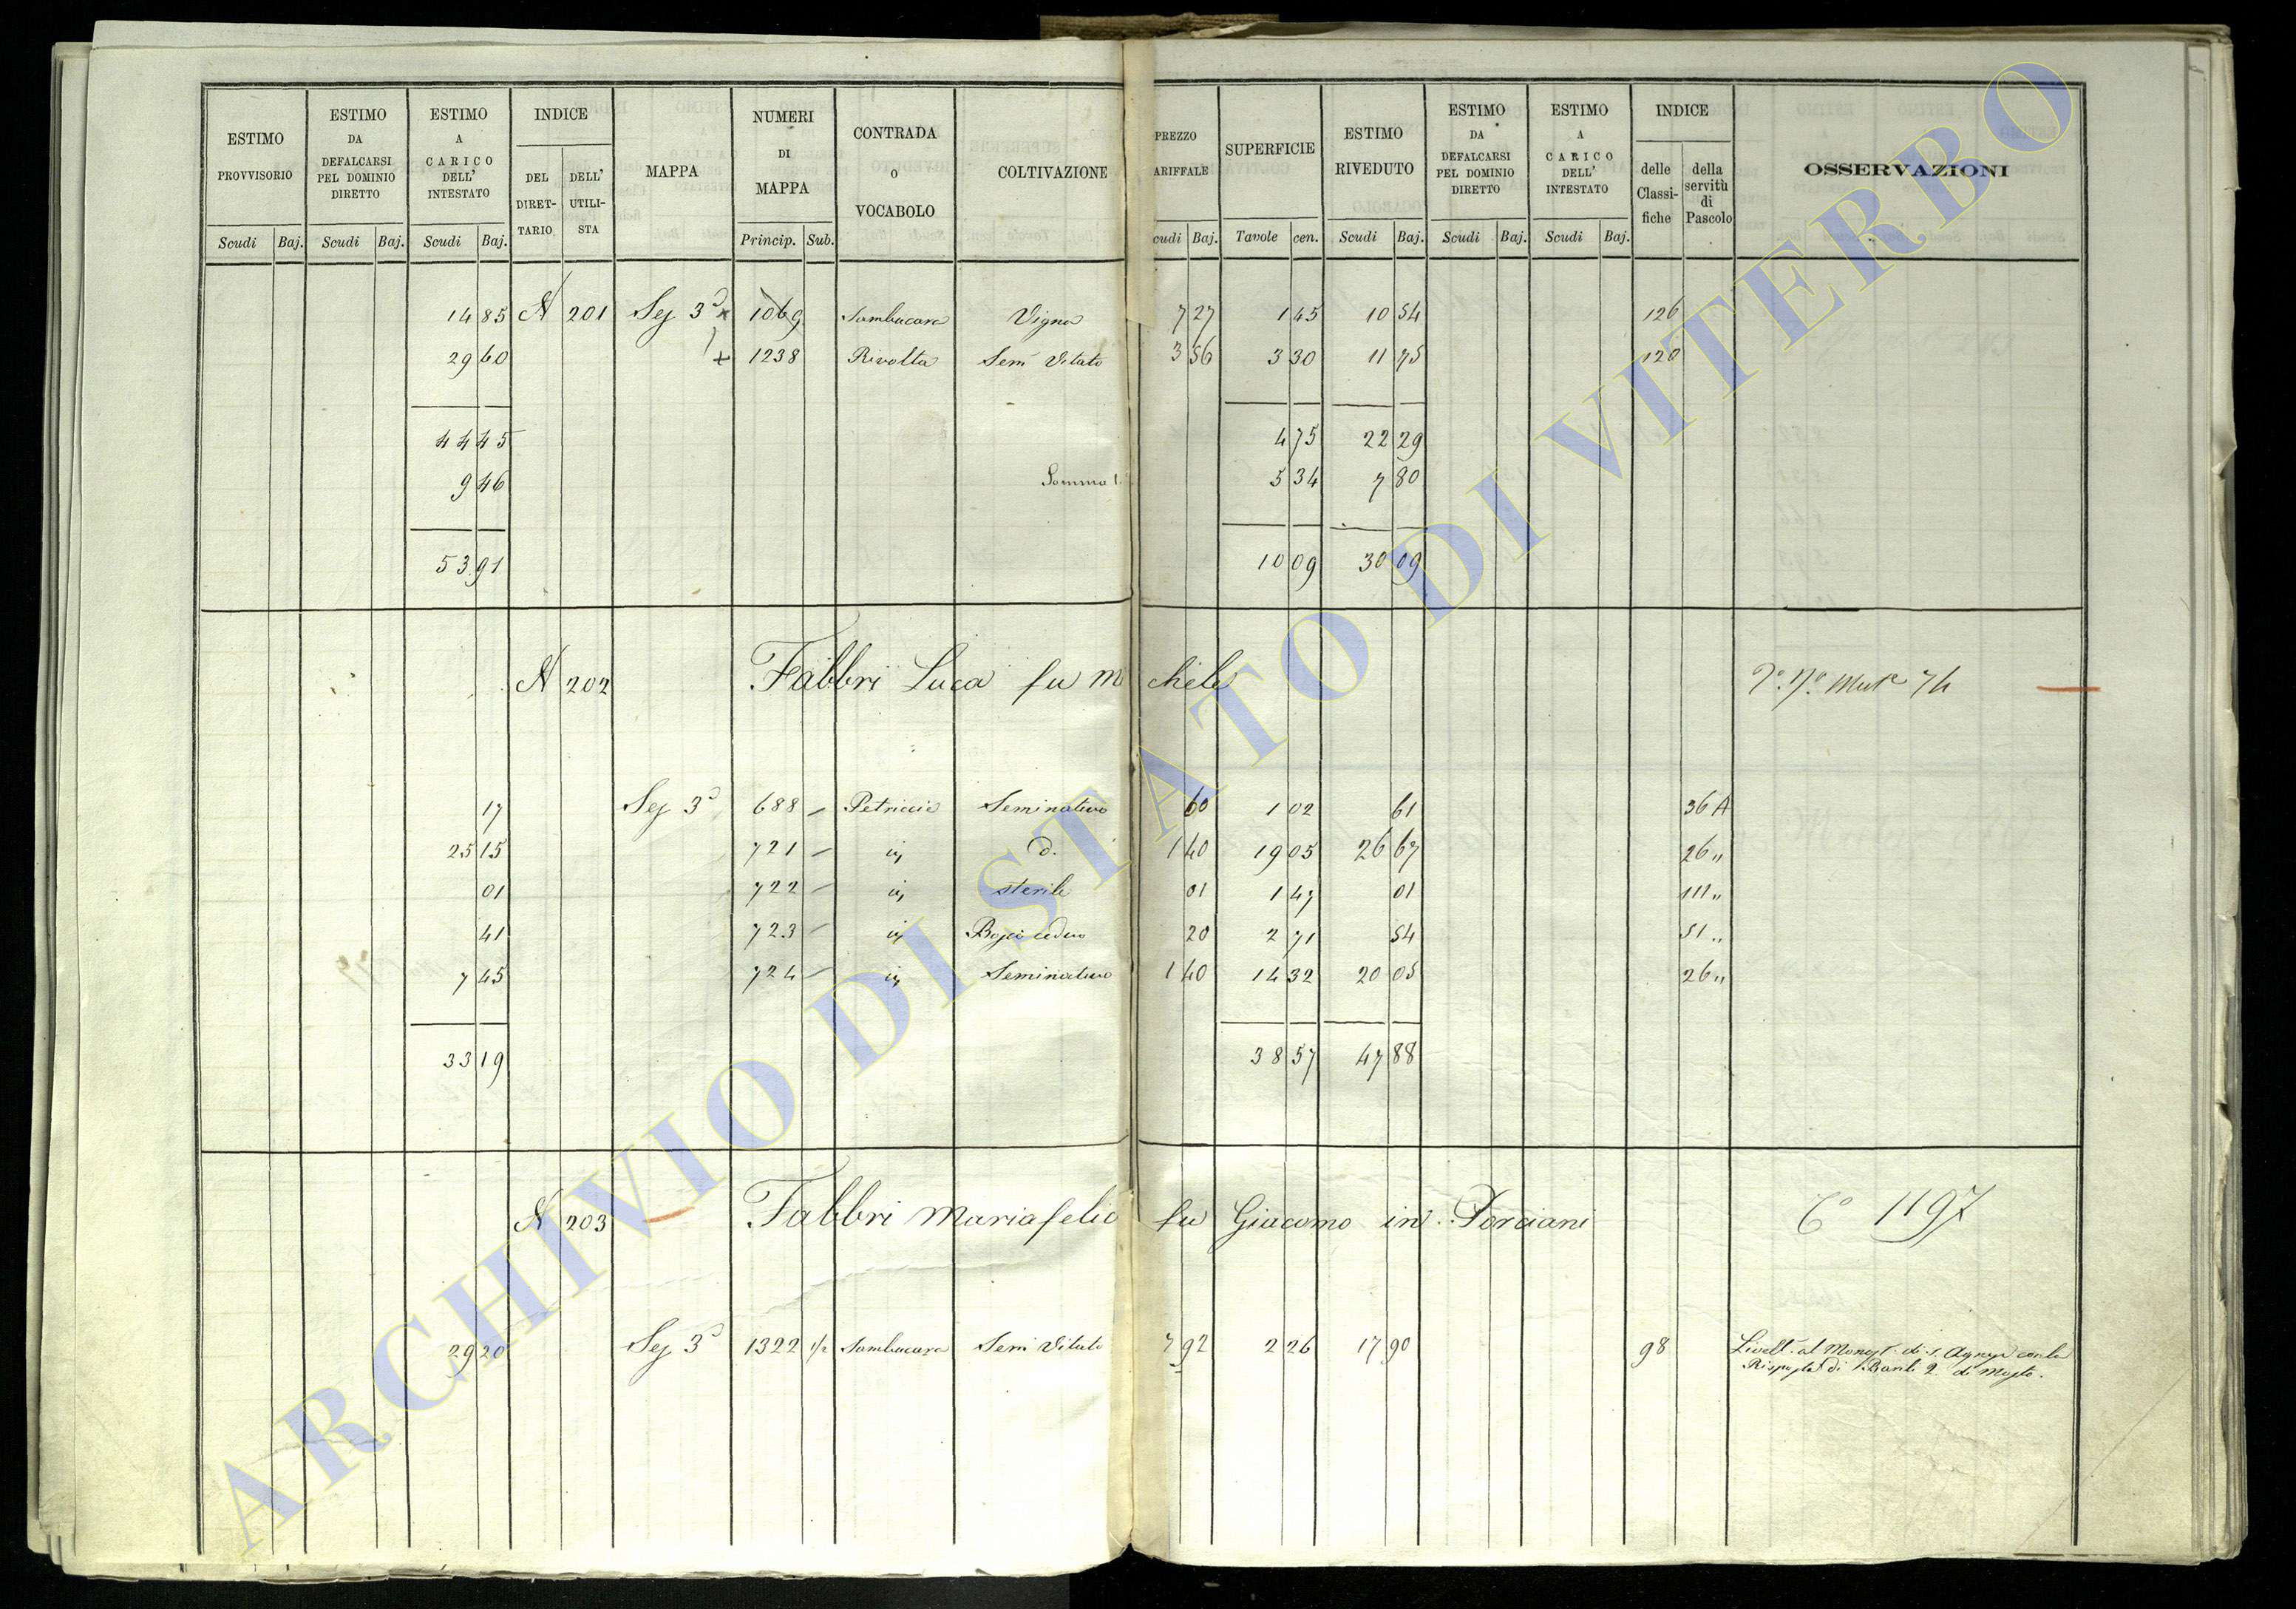 ESTIMO PROVVISORIO
Scudi Baj.
ESTIMO DA DEFALCARSI PEL DOMINIO DIRETTO
Scudi Baj.
ESTIMO A CARICO DELL' INTESTATO
Scudi Baj.
INDICE
DEL DIRET-TARIO
DELL' UTILI-STA
MAPPA
NUMERI DI MAPPA
Princip. Sub.
CONTRADA O VOCABOLO
COLTIVAZIONE
PREZZO
ARIFFALE
cudi Baj.
SUPERFICIE
Tavole cen.
ESTIMO RIVEDUTO
Scudi Baj.
ESTIMO DA DEFALCARSI PEL DOMINIO DIRETTO
Scudi Baj.
ESTIMO A CARICO DELL' INTESTATO
Scudi Baj.
INDICE
delle Classi-fiche
della servitù di Pascolo
OSSERVAZIONI
14 85 N 201 Sez 3ª x 1069 Sambucara Vigna 7 27 1 45 10 54 126
29 60 x 1238 Rivolta Sem Vitato 3 56 3 30 11 75 120
44 45 4 75 22 29
9 46 Somma 5 34 7 80
53 91 10 09 30 09
N 202 Fabbri Luca fu Michele 74
17 Sez 3ª 688 Petriccia Seminativo 60 1 02 61 36 A
25 15 721 id. d. 1 40 19 05 26 67 26 "
01 722 id. sterile 01 1 47 01 111 "
41 723 id. Bosco ceduo 20 2 71 54 51 "
7 45 724 id. Seminativo 1 40 14 32 20 05 26 "
33 19 38 57 47 88
N 203 Fabbri Mariafelic fu Giacomo in Porciani Cº 1197
29 20 Sez 3ª 1322 1/2 Sambucara Sem Vitato 7 92 2 26 17 90 98 Livell. al Monast. di S. Agnese con la
Risposta di Barili 2 di Mosto.
ARCHIVIO DI STATO DI VITERBO